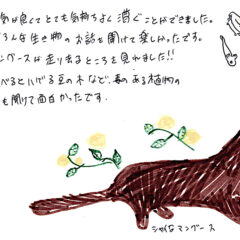 気が良くてとても気持ちよく過ごことができました。
ろんな生き物のお話を聞けて楽しかったです。
ングースは走り出るところを見れました!!
べるとハゲる豆の木など、毒のある植物の
も聞けて面白かったです。
シャイなマングース